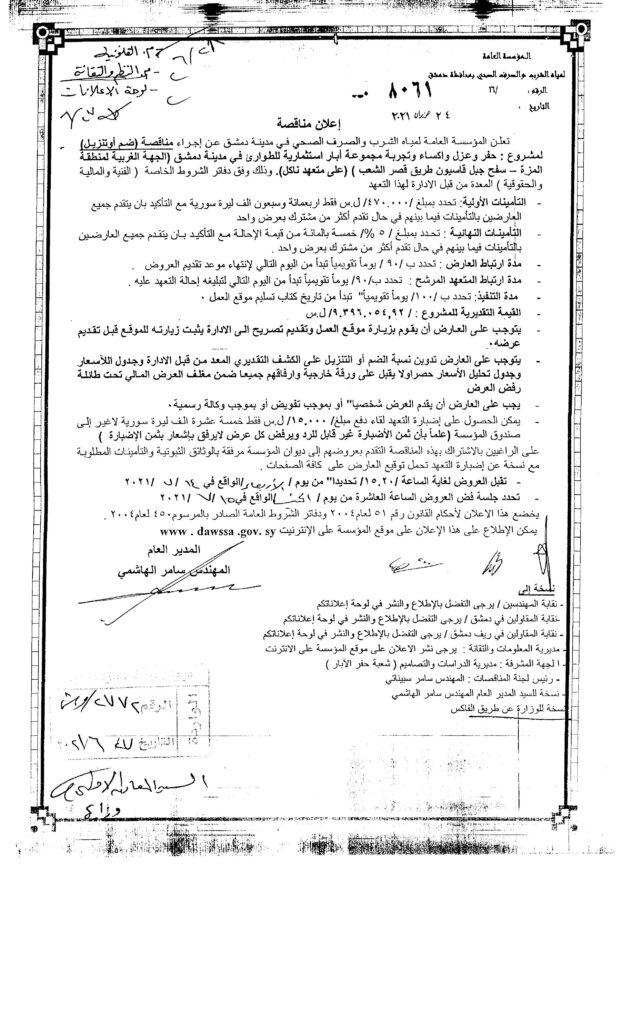 المؤسسة العامة
لمياه الشرب والصرف الصحي بمحافظة دمشق
الرقم : ٨٠٦١ /٢٦
التاريخ : ٢٤ حزيران ٢٠٢١
لوحة الاعلانات
إعلان مناقصة
تعلن المؤسسة العامة لمياه الشرب والصرف الصحي في مدينة دمشق عن إجراء مناقصة (ضم أوتنزيل)
لمشروع : حفر وعزل واكساء وتجربة مجموعة آبار استثمارية للطوارئ في مدينة دمشق (الجهة الغربية لمنطقة
المزة – سفح جبل قاسيون طريق قصر الشعب ) (على متعهد ناكل). وذلك وفق دفاتر الشروط الخاصة ( الفنية والمالية
والحقوقية ) المعدة من قبل الادارة لهذا التعهد
- التأمينات الأولية: تحدد بمبلغ /٤٧٠.٠٠٠/ ل.س فقط اربعمائة وسبعون الف ليرة سورية مع التأكيد بان يتقدم جميع
العارضين بالتأمينات فيما بينهم في حال تقدم أكثر من مشترك بعرض واحد
- التأمينات النهائية: تحدد بمبلغ / ٥ %/ خمسة بالمائة من قيمة الإحالة مع التأكيد بان يتقدم جميع العارضين
بالتأمينات فيما بينهم في حال تقدم أكثر من مشترك بعرض واحد .
- مدة ارتباط العارض : تحدد ب /٩٠ / يوماً تقويمياً تبدأ من اليوم التالي لإنتهاء موعد تقديم العروض .
- مدة ارتباط المتعهد المرشح : تحدد ب/٩٠/ يوماً تقويمياً تبدأ من اليوم التالي لتبليغه إحالة التعهد عليه .
- مدة التنفيذ: تحدد ب /١٠٠/ يوماً تقويمياً" تبدأ من تاريخ كتاب تسليم موقع العمل ٠
- القيمة التقديرية للمشروع : /٩.٣٩٦.٠٥٤,٩٢/ ل.س
- يتوجب على العارض أن يقوم بزيارة موقع العمل وتقديم تصريح الى الادارة يثبت زيارته للموقع قبل تقديم
عرضه٠
- يتوجب على العارض تدوين نسبة الضم أو التنزيل على الكشف التقديري المعد من قبل الادارة وجدول الأسعار
وجدول تحليل الأسعار حصراولا يقبل على ورقة خارجية وارفاقهم جميعا ضمن مغلف العرض المالي تحت طائلة
رفض العرض
- يجب على العارض أن يقدم العرض شخصيا" أو بموجب تفويض أو بموجب وكالة رسمية٠
- يمكن الحصول على إضبارة التعهد لقاء دفع مبلغ /١٥.٠٠٠/ ل.س فقط خمسة عشرة الف ليرة سورية لاغير إلى
صندوق المؤسسة (علماً بأن ثمن الأضبارة غير قابل للرد ويرفض كل عرض لايرفق بإشعار بثمن الإضبارة )
على الراغبين بالاشتراك بهذه المناقصة التقدم بعروضهم إلى ديوان المؤسسة مرفقة بالوثائق الثبوتية والتأمينات المطلوبة
مع نسخة عن إضبارة التعهد تحمل توقيع العارض على كافة الصفحات .
- تقبل العروض لغاية الساعة /١٥.٢٠/ تحديدا" من يوم / الأربعاء/الواقع في ١٤/ ٧ / ٢٠٢١
- تحدد جلسة فض العروض الساعة العاشرة من يوم / /الواقع في ١٥/ ٧ / ٢٠٢١
يخضع هذا الاعلان لأحكام القانون رقم ٥١ لعام ٢٠٠٤ ودفاتر الشروط العامة الصادر بالمرسوم٤٥٠ لعام ٢٠٠٤.
يمكن الإطلاع على هذا الإعلان على موقع المؤسسة على الإنترنيت www . dawssa .gov. sy
المدير العام
المهندس سامر الهاشمي
نسخة إلى
- نقابة المهندسين / يرجى التفضل بالإطلاع والنشر في لوحة إعلاناتكم
-نقابة المقاولين في دمشق / يرجى التفضل بالإطلاع والنشر في لوحة إعلاناتكم
- نقابة المقاولين في ريف دمشق / يرجى التفضل بالإطلاع والنشر في لوحة إعلاناتكم
- مديرية المعلومات والتقانة : يرجى نشر الاعلان على موقع المؤسسة على الانترنت
- الجهة المشرفة : مديرية الدراسات والتصاميم ( شعبة حفر الآبار )
- رئيس لجنة المناقصات : المهندس سامر سبيناتي
- نسخة للسيد المدير العام المهندس سامر الهاشمي
نسخة للوزارة عن طريق الفاكس
الواردة
الرقم ٢٧٧٢
التاريخ ٢٧ ٦ ٢٠٢١